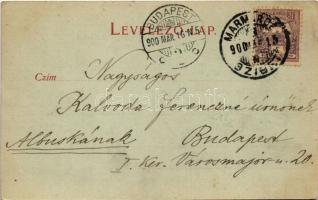 LEVELEZŐ-LAP.
BUDAPEST
900 MAR 16
Czim
Nagyságos
Kalvoda Ferenczné úrnőnek
Albuskának
Budapest
I. Ker. Városmajor u. 20.